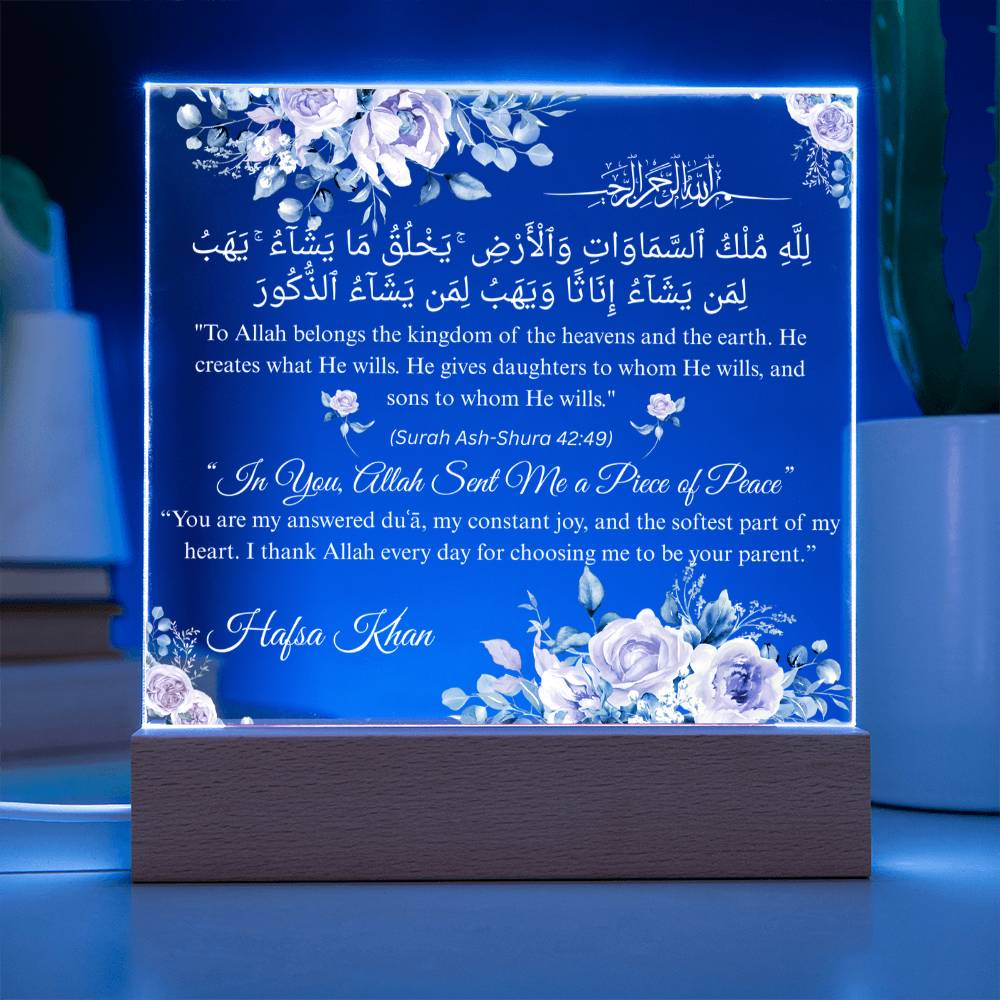 بسم الله الرحمن الرحيم
لِلَّهِ مُلْكُ ٱلسَّمَاوَاتِ وَٱلْأَرْضِ ۚ يَخْلُقُ مَا يَشَآءُ ۚ يَهَبُ
لِمَن يَشَآءُ إِنَاثًا وَيَهَبُ لِمَن يَشَآءُ ٱلذُّكُورَ
"To Allah belongs the kingdom of the heavens and the earth. He
creates what He wills. He gives daughters to whom He wills, and
sons to whom He wills."
(Surah Ash-Shura 42:49)
“In You, Allah Sent Me a Piece of Peace”
“You are my answered duʿā, my constant joy, and the softest part of my
heart. I thank Allah every day for choosing me to be your parent.”
Hafsa Khan